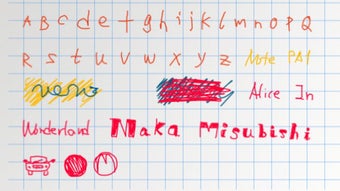 A B C d e t g h i j k l m n o P Q
R s t u V w x y z Note PAI
Alice In
Wonderland Maka Misubishi